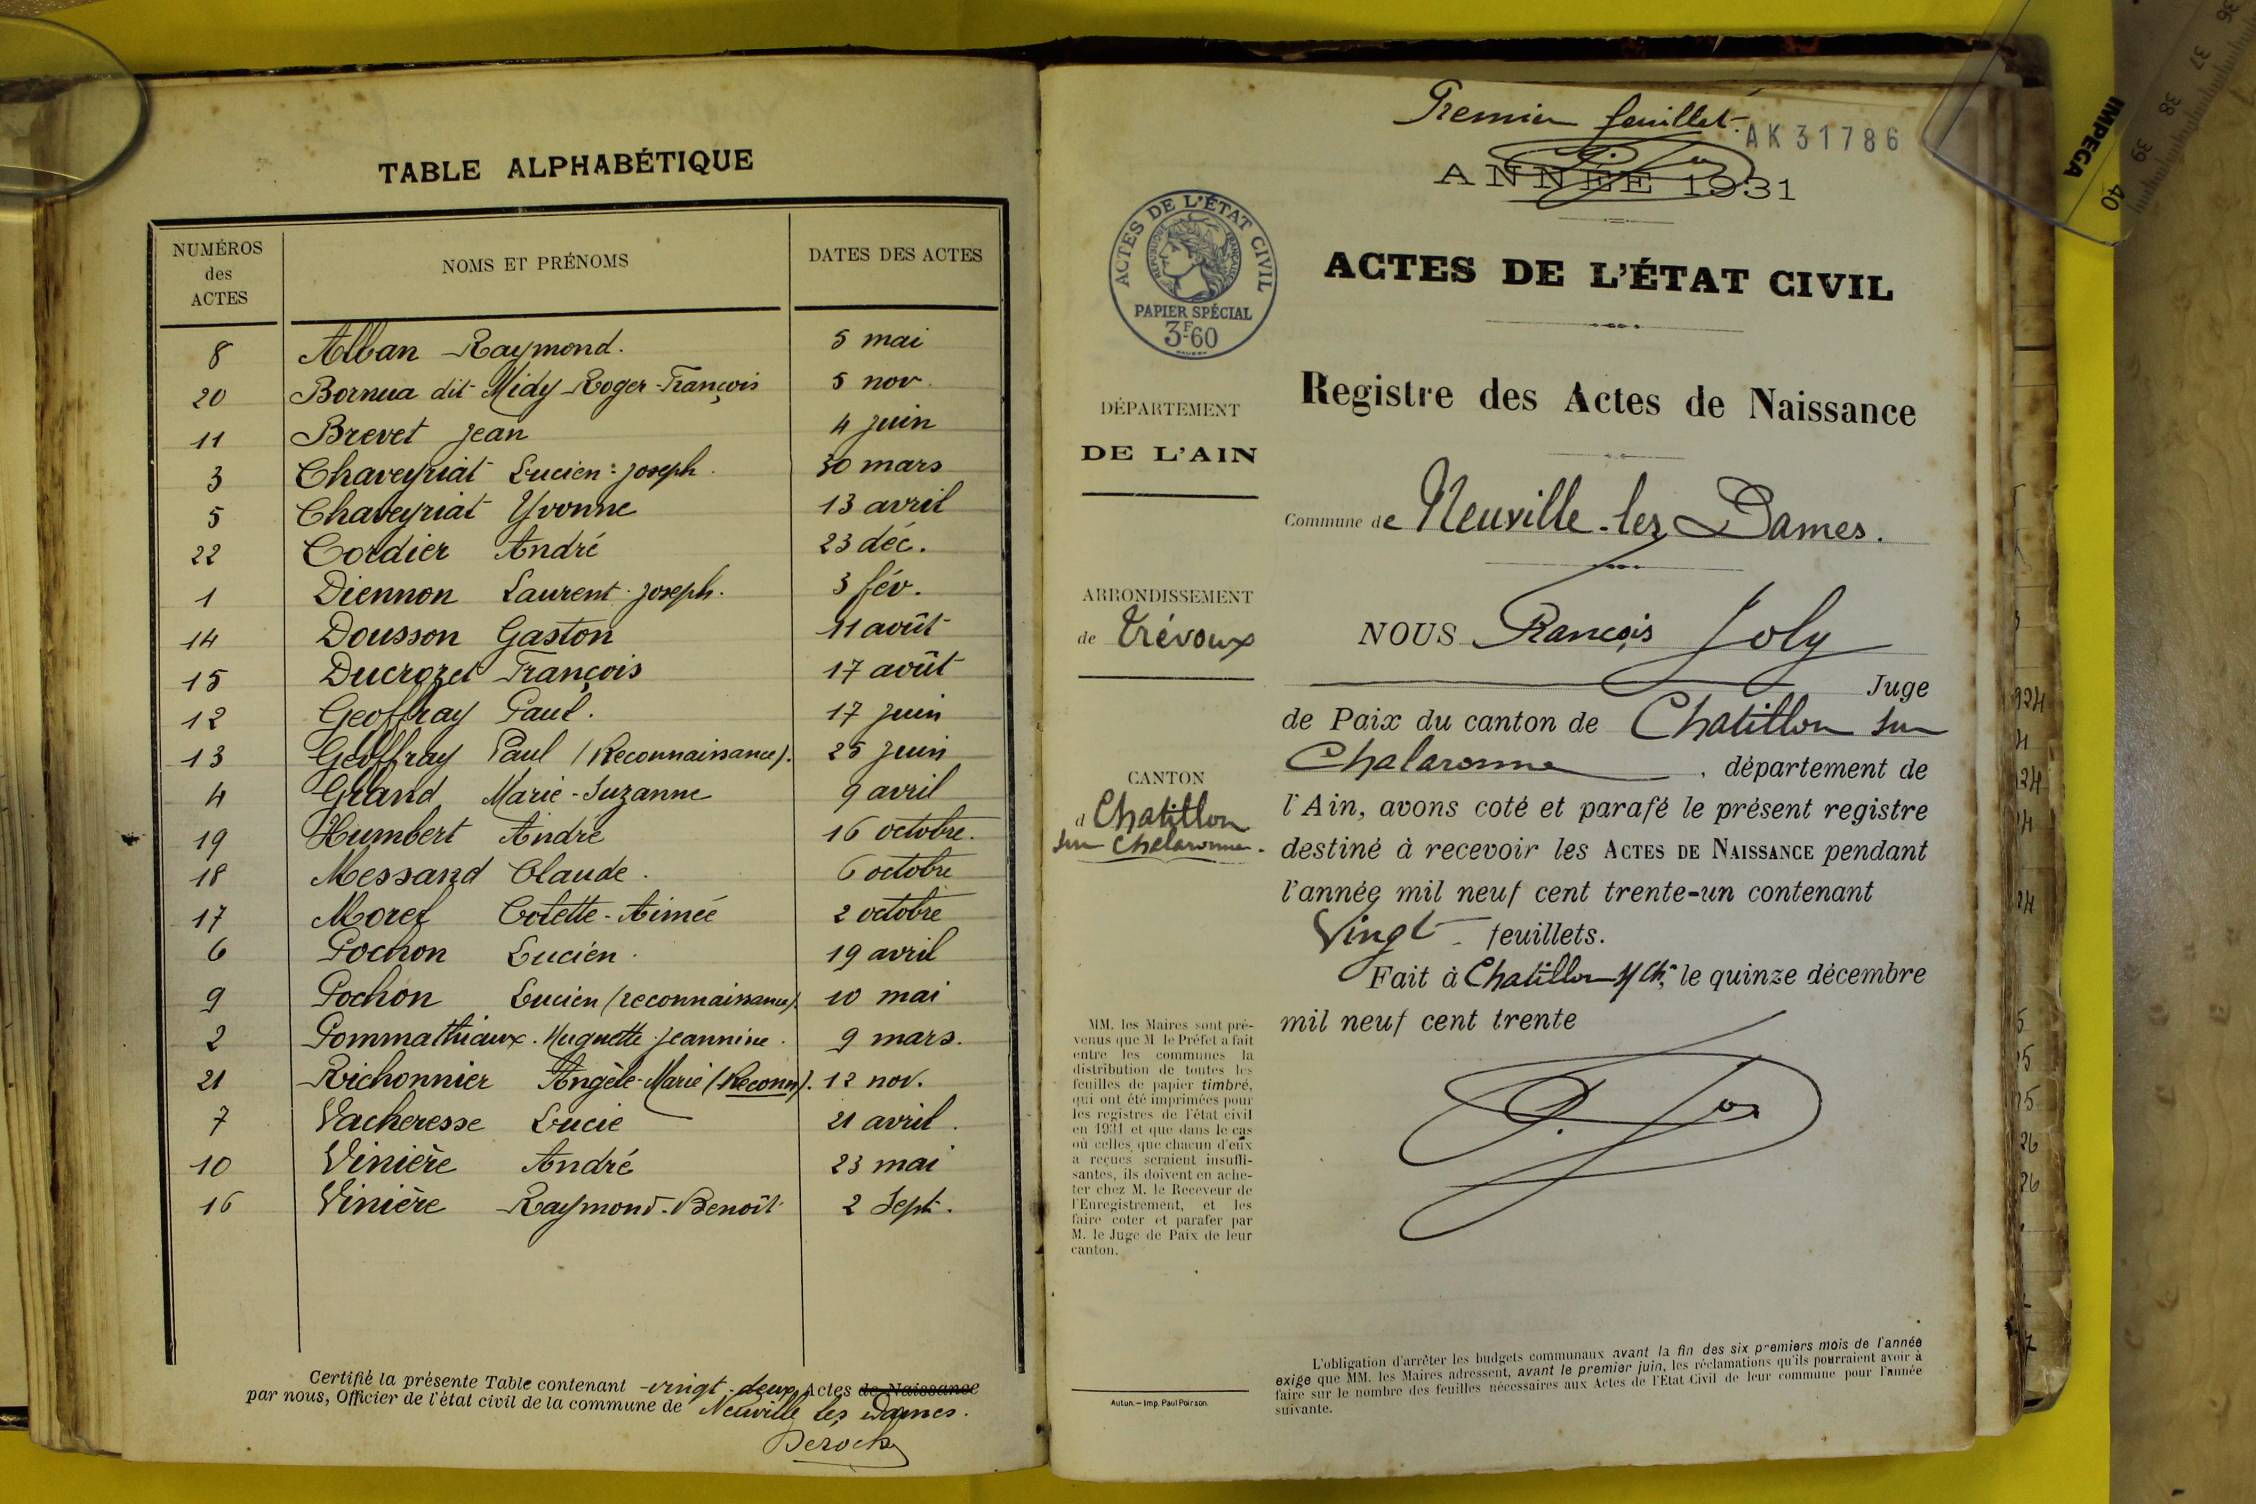 TABLE ALPHABÉTIQUE
NUMÉROS des ACTES NOMS ET PRÉNOMS DATES DES ACTES
8 Alban Raymond. 5 mai
20 Bornua dit Midy Roger-François 5 nov.
11 Brevet Jean 4 juin
3 Chaveyriat Lucien-Joseph. 30 mars
5 Chaveyriat Yvonne 13 avril
22 Cordier André 23 déc.
1 Diennon Laurent-Joseph. 3 fév.
14 Dousson Gaston 11 août
15 Ducrozet François 17 août
12 Geoffray Paul. 17 juin
13 Geoffray Paul (Reconnaissance). 25 juin
4 Grand Marie-Suzanne 9 avril
19 Humbert André 16 octobre.
18 Messand Claude. 6 octobre
17 Morel Colette-Aimée 2 octobre
6 Pochon Lucien. 19 avril
9 Pochon Lucien (reconnaissance). 10 mai
2 Pommathiaux. Huguette-Jeannine. 9 mars.
21 Richonnier Angèle-Marie (Reconn). 12 nov.
7 Vacheresse Lucie 21 avril.
10 Vinière André 23 mai
16 Vinière Raymond-Benoît 2 Sept.
Certifié la présente Table contenant vingt-deux Actes de Naissance
par nous, Officier de l'état civil de la commune de Neuville les Dames.
Premier feuillet.
AK31786
ANNÉE 1931
ACTES DE L'ÉTAT CIVIL
RÉPUBLIQUE FRANÇAISE
PAPIER SPÉCIAL
3F60
ACTES DE L'ÉTAT CIVIL
Registre des Actes de Naissance
DÉPARTEMENT
DE L'AIN
Commune de Neuville-les Dames.
ARRONDISSEMENT
de Trévoux
NOUS François Joly
Juge
de Paix du canton de Chatillon sur
Chalaronne, département de
CANTON
d Chatillon
sur Chalaronne.
l'Ain, avons coté et parafé le présent registre
destiné à recevoir les ACTES DE NAISSANCE pendant
l'année mil neuf cent trente-un contenant
Vingt feuillets.
Fait à Chatillon s/ Ch, le quinze décembre
mil neuf cent trente
MM. les Maires sont pré-
venus que M le Préfet a fait
entre les communes la
distribution de toutes les
feuilles de papier timbré,
qui ont été imprimées pour
les registres de l'état civil
en 1931 et que dans le cas
où celles que chacun d'eux
a reçues seraient insuffi-
santes, ils doivent en ache-
ter chez M. le Receveur de
l'Enregistrement, et les
faire coter et parafer par
M. le Juge de Paix de leur
canton.
Autun.—Imp. Paul Poirson.
L'obligation d'arrêter les budgets communaux avant la fin des six premiers mois de l'année
exige que MM. les Maires adressent, avant le premier juin, les réclamations qu'ils pourraient avoir à
faire sur le nombre des feuilles nécessaires aux Actes de l'Etat Civil de leur commune pour l'année
suivante.
IMPEGA
36
37
38
39
40